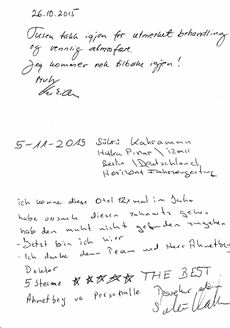 26.10.2015
Tusen takk igjen for utmerket behandling
og vennlig atmosfære.
Jeg kommer nok tilbake igjen!
5-11-2015 Sükrü Kahramann
Berlin \ Deutschland
ich komme diese Otel 12 mal im Jahr
habe versuch diesen zahnartz gehen
hab den muht nicht gefunden zugehen
- Jetzt bin ich hier
- Ich danke dem Team und Herr Ahmetbey
Doktor
5 Sterne ☆☆☆☆☆ THE BEST
Ahmetbey ve Personalle